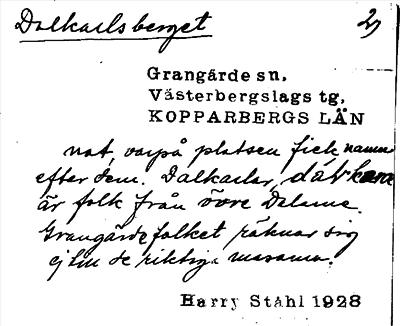 Dalkarlsberget 2)
Grangärde sn,
Västerbergslags tg,
KOPPARBERGS LÄN
nat, varpå platsen fick namn
efter dem. Dalkarlar, däRkarar
är folk från övre Dalarna.
Grangärdefolket räknar sig
ej till de riktiga masarna.
Harry Ståhl 1928